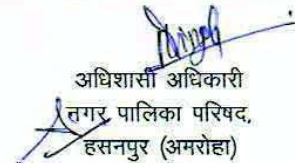 अधिशासी अधिकारी
नगर पालिका परिषद,
हसनपुर (अमरोहा)